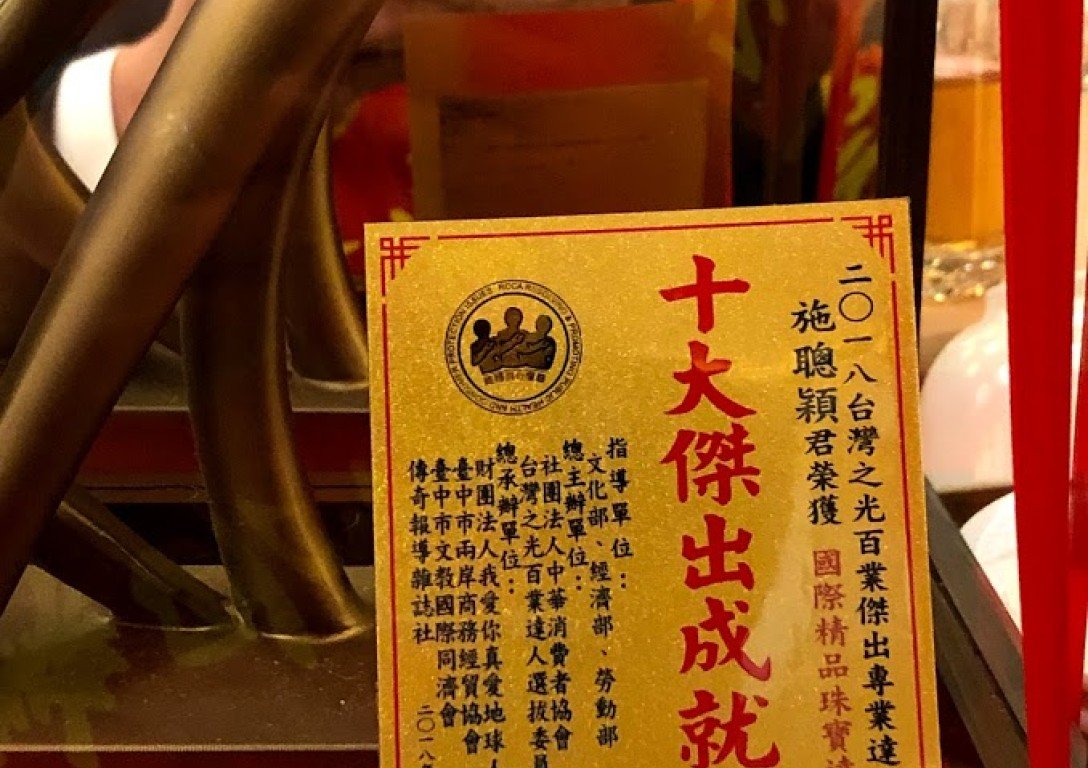 二〇一八台灣之光百業傑出專業達
施聰穎君榮獲 國際精品珠寶達
十大傑出成就
指導單位：
文化部、經濟部、勞動部
總主辦單位：
社團法人中華消費者協會
台灣之光百業達人選拔委員
總承辦單位：
財團法人我愛你真愛地球人
臺中市兩岸商務經貿協會
臺中市文教國際同濟會
傳奇報導雜誌社
二〇一八年